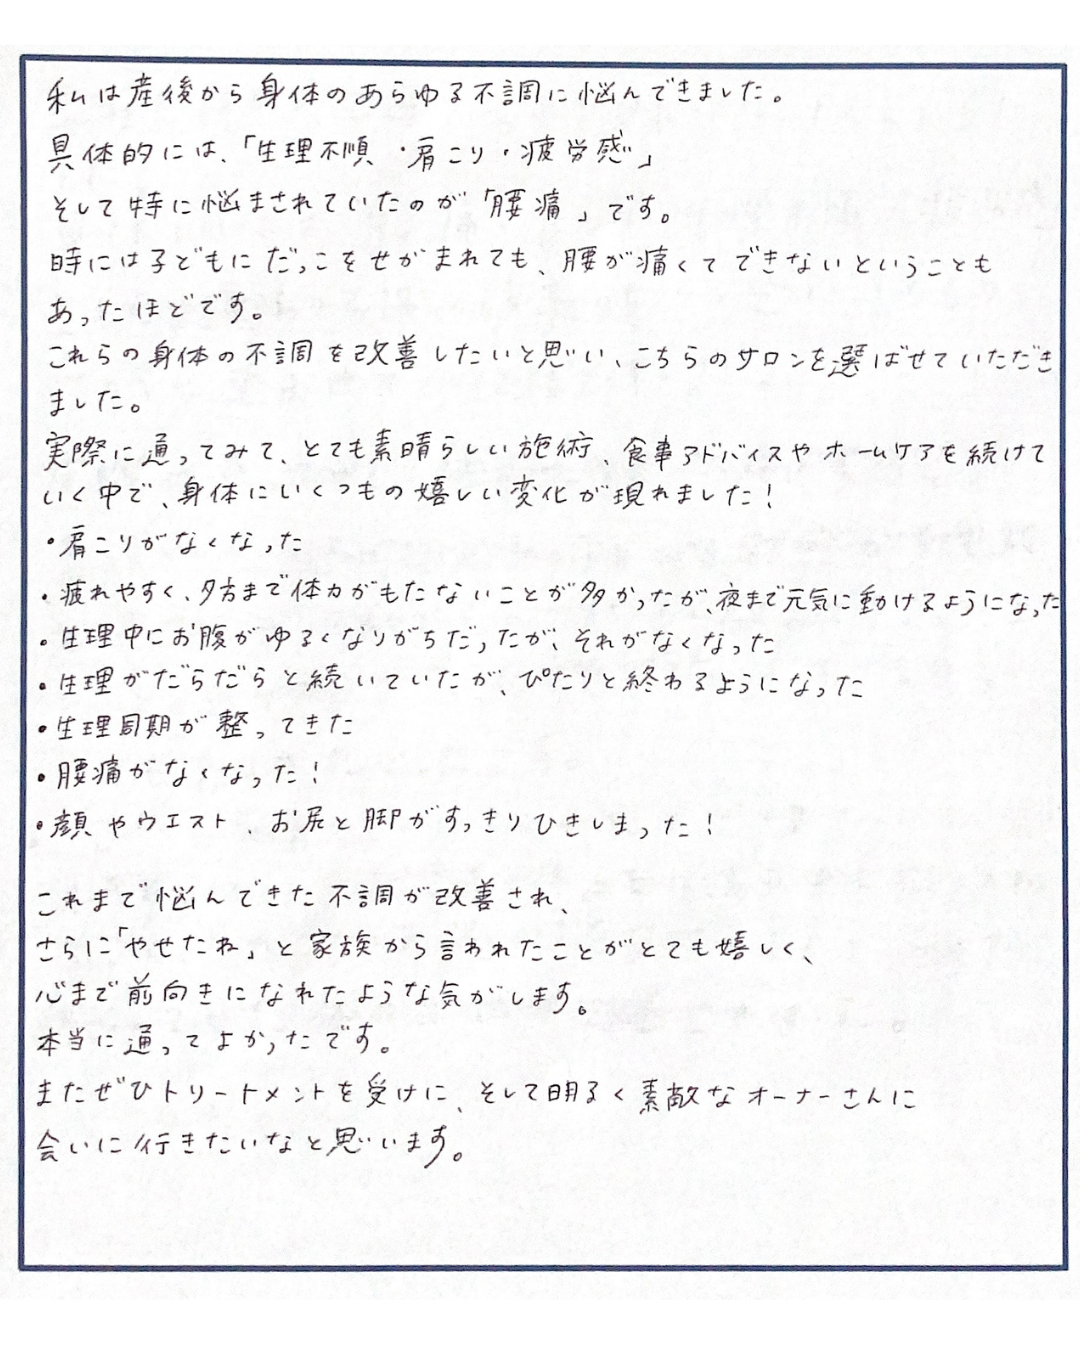 私は産後から身体のあらゆる不調に悩んできました。
具体的には、「生理不順・肩こり・疲労感」
そして特に悩まされていたのが「腰痛」です。
時には子どもにだっこをせがまれても、腰が痛くてできないということも
あったほどです。
これらの身体の不調を改善したいと思い、こちらのサロンを選ばせていただき
ました。
実際に通ってみて、とても素晴らしい施術、食事アドバイスやホームケアを続けて
いく中で、身体にいくつもの嬉しい変化が現れました！
・肩こりがなくなった
・疲れやすく、夕方まで体力がもたないことが多かったが、夜まで元気に動けるようになった
・生理中にお腹がゆるくなりがちだったが、それがなくなった
・生理がだらだらと続いていたが、ぴたりと終わるようになった
・生理周期が整ってきた
・腰痛がなくなった！
・顔やウエスト、お尻と脚がすっきりひきしまった！
これまで悩んできた不調が改善され、
さらに「やせたね」と家族から言われたことがとても嬉しく、
心まで前向きになれたような気がします。
本当に通ってよかったです。
またぜひトリートメントを受けに、そして明るく素敵なオーナーさんに
会いに行きたいなと思います。